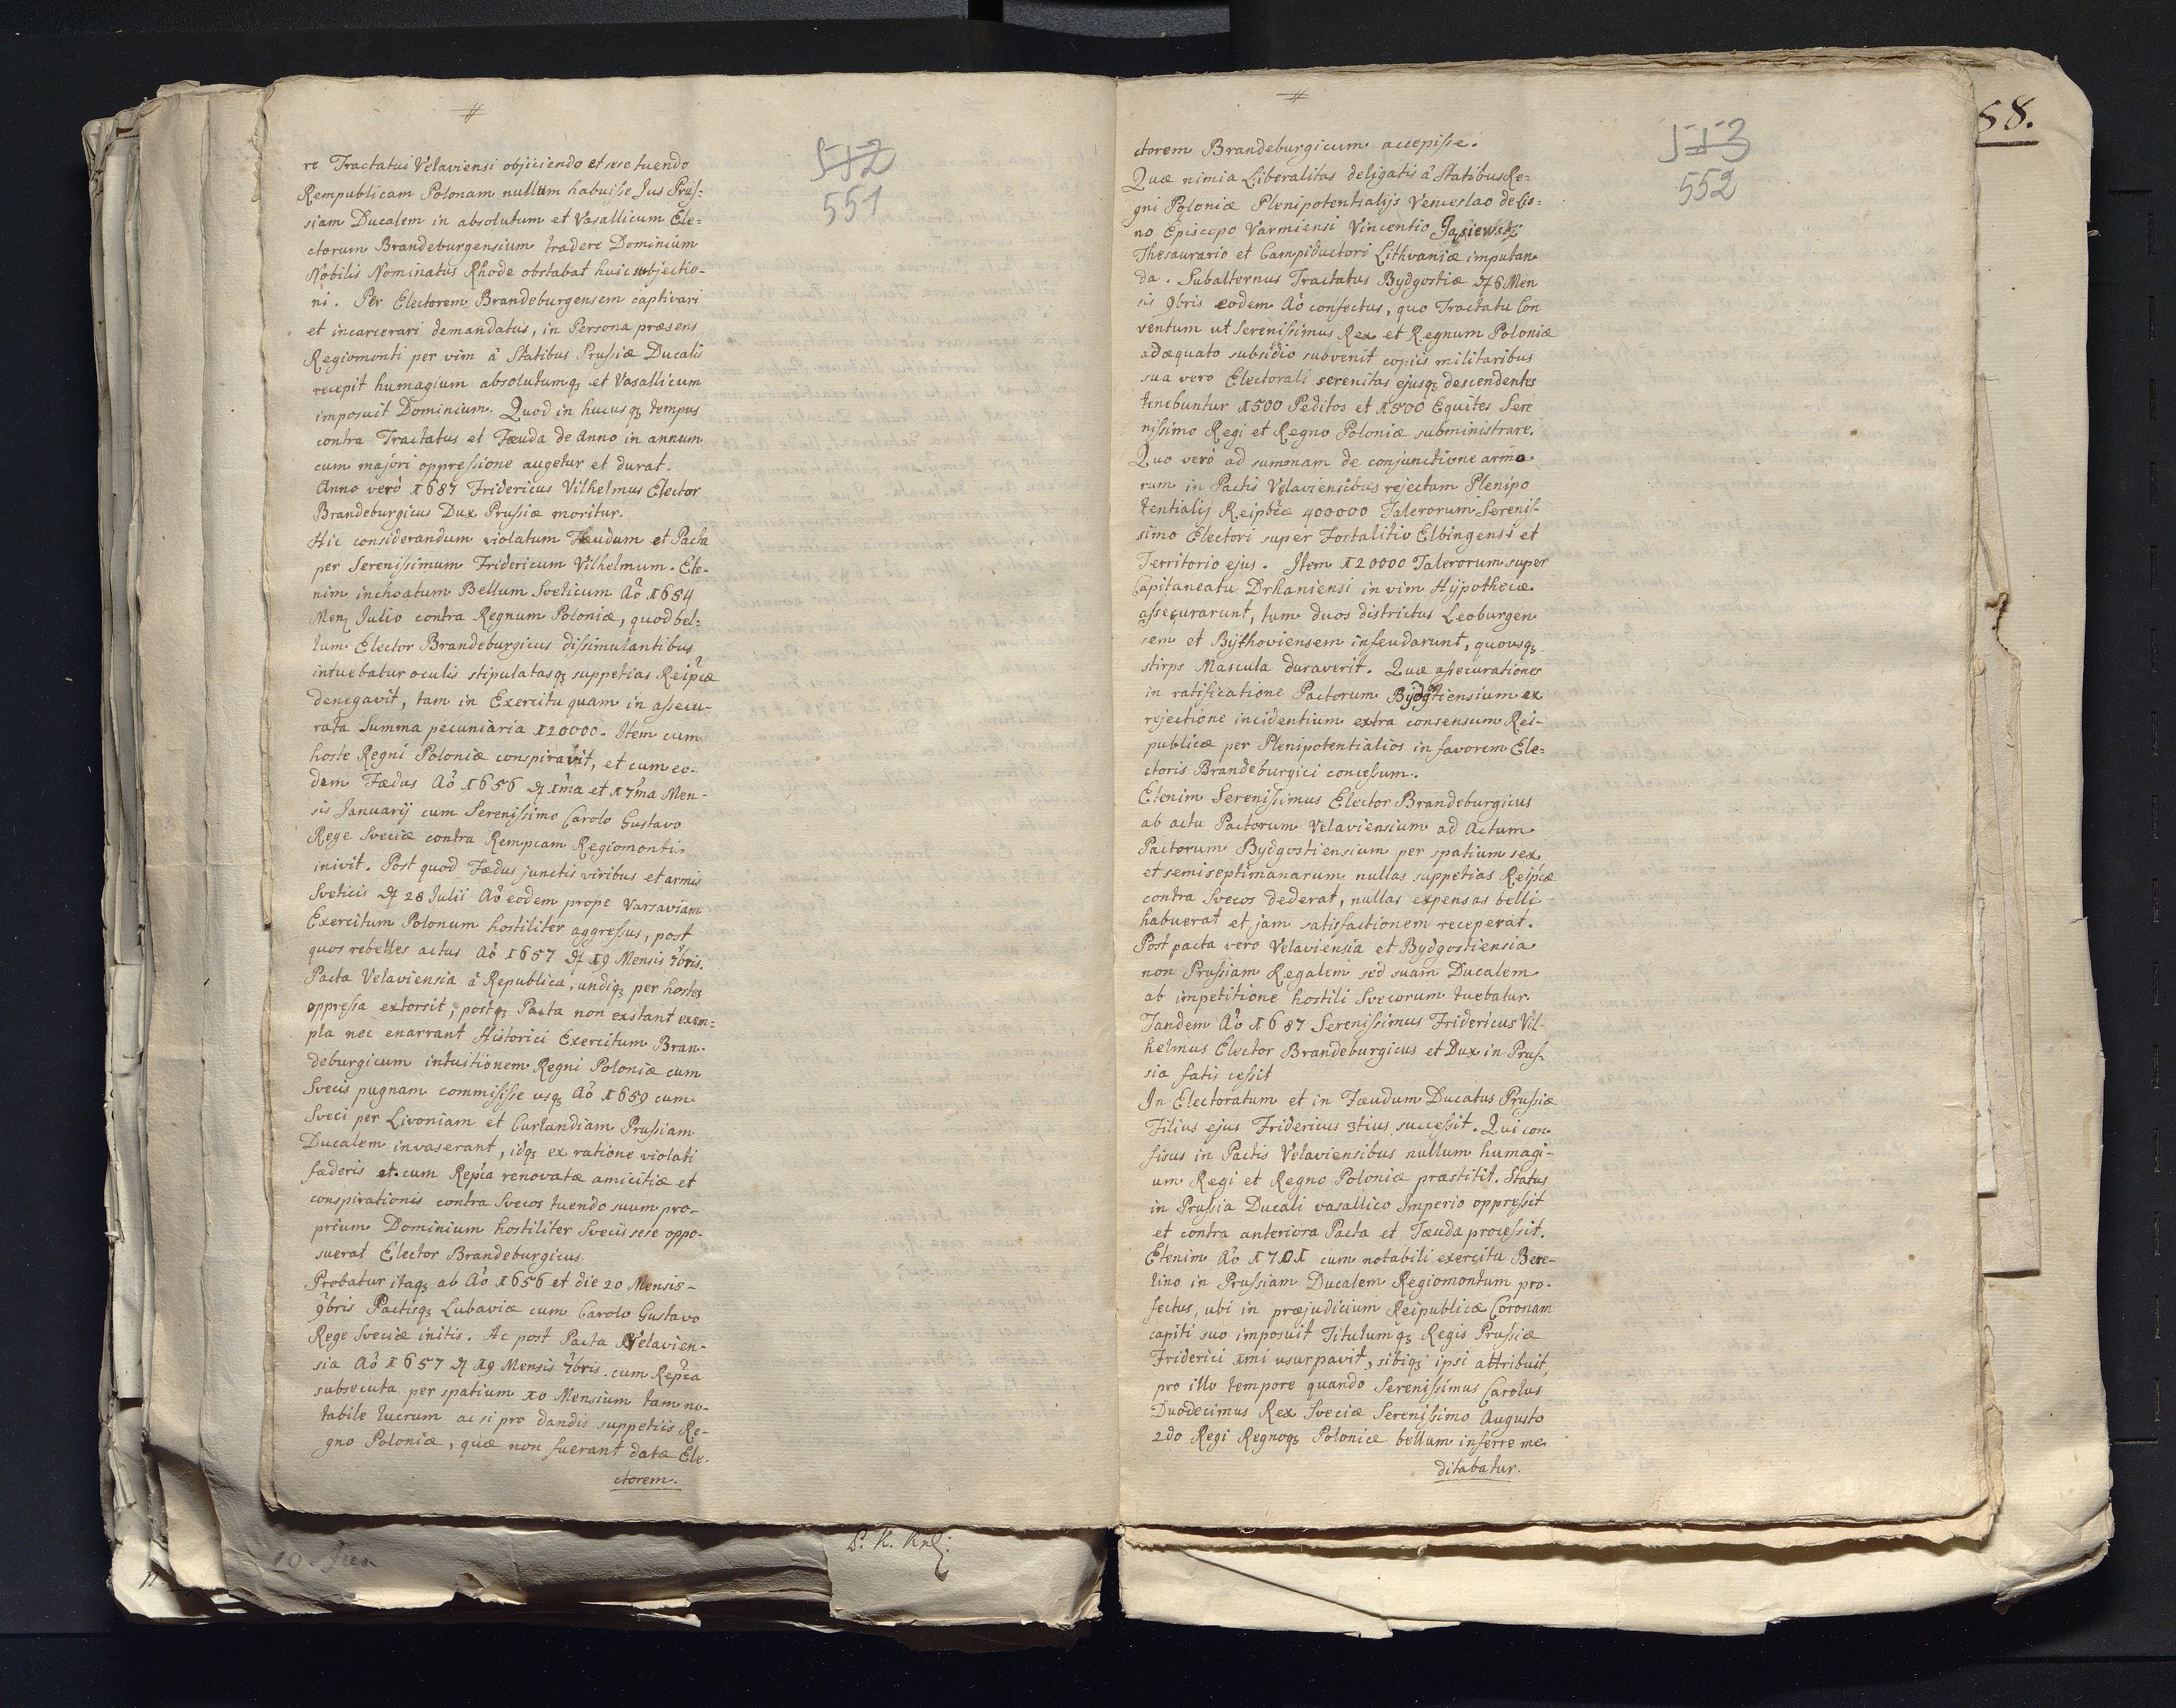 #
512
551
re Tractatui Velaviensi objiciendo et sese tuendo
Rempublicam Polonam nullum habuisse Jus Prus=
siam Ducalem in absolutum et Vasallicum Ele=
ctorum Brandeburgensium tradere Dominium
Nobilis Nominatus Rhode obstabat huic subjectio-
ni. Per Electorem Brandeburgensem captivari
et incarcerari demandatus, in Persona præsens
Regiomonti per vim â Statibus Prussiæ Ducalis
recepit humagium absolutumqꝫ et Vasallicum
imposuit Dominium. Quod in hucusqꝫ tempus
contra Tractatus et Fæuda de Anno in annum
cum majori oppressione augetur et durat.
Anno verò 1687 Fridericus Vilhelmus Elector
Brandeburgicus Dux Prussiæ moritur.
Hic considerandum violatum Fæudum et Pacta
per Serenissimum Fridericum Vilhelmum. Ete-
nim inchoatum Bellum Sveticum Aô 1654
Menꝫ Julio contra Regnum Poloniæ, quod bel=
lum Elector Brandeburgicus dissimulantibus
intuebatur oculis stipulatasqꝫ suppetias Reipcæ
denegavit, tam in Exercitu quam in assecu-
rata Summa pecuniaria 120000. Item cum
hoste Regni Poloniæ conspiravit, et cum eo-
dem Fædus Aô 1656 ꝺ 1ma et 17ma Men-
sis Januarij cum Serenissimo Carolo Gustavo
Rege Sveciæ contra Rempcam Regiomonti
inivit. Post quod Fædus junctis viribus et armis
Sveticis ꝺ 28 Julii Aô eodem prope Varsaviam
Exercitum Polonum hostiliter aggressus, post
quos rebelles actus Aô 1657 ꝺ 19 Mensis 7bris.
Pacta Velaviensia â Republica, undiqꝫ per hostes
oppressa extorsit, postqꝫ Pacta non exstant exem=
pla nec enarrant Historici Exercitum Bran-
deburgicum intuitionem Regni Poloniæ cum
Svecis pugnam commisisse usqꝫ Aô 1659 cum
Sveci per Livoniam et Curlandiam Prussiam
Ducalem invaserant, idqꝫ ex ratione violati
fæderis et cum Repca renovatæ amicitiæ et
conspirationis contra Svecos tuendo suum pro-
prium Dominium hostiliter Svecis sese oppo-
suerat Elector Brandeburgicus.
Probatur itaqꝫ ab Aô 1656 et die 20 Mensis-
9bris Pactisqꝫ Lubaviæ cum Carolo Gustavo
Rege Sveciæ initis. Ac post Pacta Velavien-
sia Aô 1657 ꝺ 19 Mensis 7bris. cum Repca
subsecuta per spatium 10 Mensium tam no-
tabile lucrum ac si pro dandis suppetiis Re-
gno Poloniæ, quæ non fuerant datæ Ele-
ctorem.
10. Jun
P. K. Kr
#
513
552
58.
ctorem Brandeburgicum accepisse.
Quæ nimia Liberalitas deligatis â Statibus Re=
gni Poloniæ Plenipotentialijs Venceslao de Lis=
no Episcopo Varmiensi Vincentio Gąsiewski
Thesaurario et Campiductori Lithvaniæ imputan
da. Subalternus Tractatus Bydgostiæ ꝺ 6 Men
sis 9bris eodem Aô confectus, quo Tractatu Con
ventum ut Serenissimus Rex et Regnum Poloniæ
adæquato subsidio subvenit copiis militaribus
sua vero Electorali serenitas ejusqꝫ descendentes
tenebuntur 1500 Peditos et 1500 Equites Sere
nissimo Regi et Regno Poloniæ subministrare.
Quo verò ad summam de conjunctione armo
rum in Pactis Velaviensibus rejectam Plenipo
tentialij Reipbcæ 400000 Talerorum Serenis-
simo Electori super Fortalitio Elbingensi et
Territorio ejus. Item 120000 Talerorum super
Capitaneatu Drhaniensi in vim Hypothecæ
assecurarunt, tum duos districtus Leoburgen
sem et Bythoviensem infeudarunt, quousqꝫ
stirps Mascula duraverit. Quæ assecurationes
in ratificatione Pactorum Bydgtiensium ex
rejectione incidentium extra consensum Rei-
publicæ per Plenipotentialios in favorem Ele=
ctoris Brandeburgici concessum.
Etenim Serenissimus Elector Brandeburgicus
ab actu Pactorum Velaviensium ad Actum
Pactorum Bydgostiensium per spatium sex
et semiseptimanarum nullas suppetias Reipcæ
contra Svecos dederat, nullas expensas belli
habuerat et jam satisfactionem receperat.
Post pacta vero Velaviensia et Bydgostiensia
non Prussiam Regalem sed suam Ducalem
ab impetitione hostili Svecorum tuebatur.
Tandem Aô 1687 Serenissimus Fridericus Vil-
helmus Elector Brandeburgicus et Dux in Prus-
sia fatis cessit
In Electoratum et in Fæudum Ducatus Prussiæ
Filius ejus Fridericus 3tius successit. Qui con
fisus in Pactis Velaviensibus nullum humagi-
um Regi et Regno Poloniæ præstitit. Status
in Prussia Ducali vasallico Imperio oppressit
et contra anteriora Pacta et Fæuda processit.
Etenim Aô 1701 cum notabili exercitu Bere-
lino in Prussiam Ducalem Regiomontum pro-
fectus, ubi in præjudicium Reipublicæ Coronam
capiti suo imposuit Titulumqꝫ Regis Prussiæ
Friderici 1mi usurpavit, sibiqꝫ ipsi attribuit,
pro illo tempore quando Serenissimus Carolus
Duodecimus Rex Sveciæ Serenissimo Augusto
2do Regi Regnoqꝫ Poloniæ bellum inferre me
ditabatur.